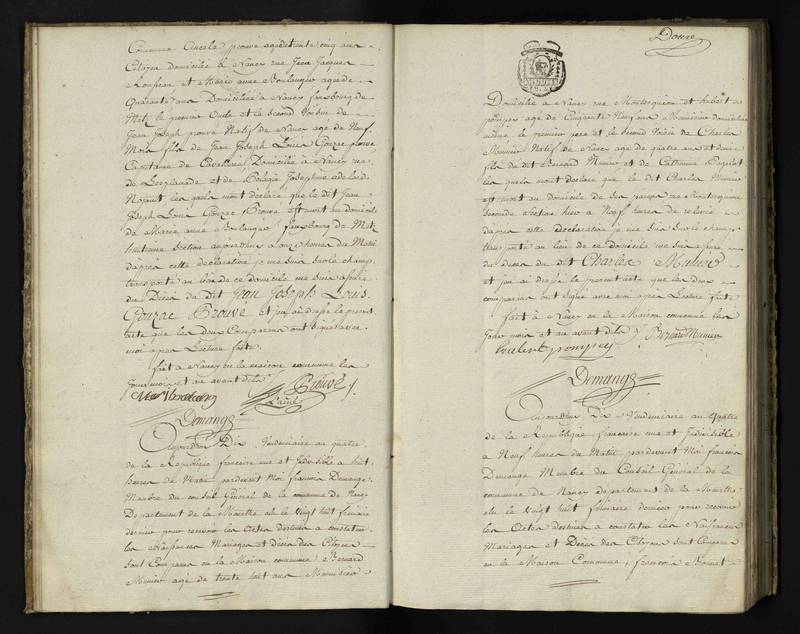 Commune Oncle prouvé agé de trente cinq ans
Citoyen domicilié à Nancy rue Jean Jacques
Rousseau et Marie anne Boulanger agée de
Quarante ans Domiciliée à Nancy fauxbourg de
Metz le premier Oncle et le second Voisine de
Jean Joseph prouvé Natif de Nancy agé de Neuf
Mois fils de Jean Joseph Louis Gouzac
Capitaine de Cavallerie Domicilié à Nancy rue
de Lesplanade et de Pelagie Josephine adelaide
Noguet les quels mont déclaré que le dit Jean
Joseph Louis Gouzac Brouvé est mort au domicile
de Marie anne Boulanger fauxbourg de Metz
Section aujourdhuy à onze heures du Matin
daprès cette déclaration je me suis sur le champ
transporté au lieu de ce domicile me suis assuré
du Décès du dit Jean Joseph Louis
Gouzac Brouvé et jai ai dressé le present
acte que les deux Comparens ont signé avec
moi apres Lecture faite
fait à Nancy en la maison commune les
Jour mois et an avant dits
Prouvé
Demange
Aujourdhuy Dix Vendemiaire an quatre
de la Republique francoise une et Indivisible à huit
heures du Matin pardevant Moi francois Demange
Membre du conseil Général de la commune de Nancy
Departement de la Meurthe elu le Vingt huit frimaire
dernier pour recevoir les Actes destinés à constater
les Naissances Mariages et Décès des Citoyens
Sont Comparus en la Maison commune Bernard
Munier agé de trente huit ans Menuisier
Douze
Domicilié à Nancy rue Montesquieu et
pompey agé de Cinquante Neuf ans Menuisier domicilié
le premier pere et le second Voisin de Charles
Munier Natif de Nancy agé de quatre ans et demi
fils du dit Bernard Munier et de Catherine
les quels mont déclaré que le dit Charles Munier
est mort au domicile de son pere rue Montesquieu
Seconde Section hier à Neuf heures de relevée
daprès cette déclaration je me suis sur le champ
transporté au lieu de ce domicile me suis assuré
du décès du dit Charles Munier
et jai ai dressé le present acte que les deux
comparans ont signé avec moi apres Lecture faite
fait à Nancy en la Maison commune les
Jour mois et an avant dits Bernard Munier
pompey
Demange
Aujourdhuy Dix Vendemiaire an quatre
de la Republique francoise une et Indivisible
à Neuf heures du Matin pardevant Moi francois
Demange Membre du Conseil Général de la
commune de Nancy departement de la Meurthe
elu le Vingt huit frimaire dernier pour recevoir
les Actes destinés à constater les Naissances
Mariages et Décès des Citoyens Sont Comparus
en la Maison Commune, francois